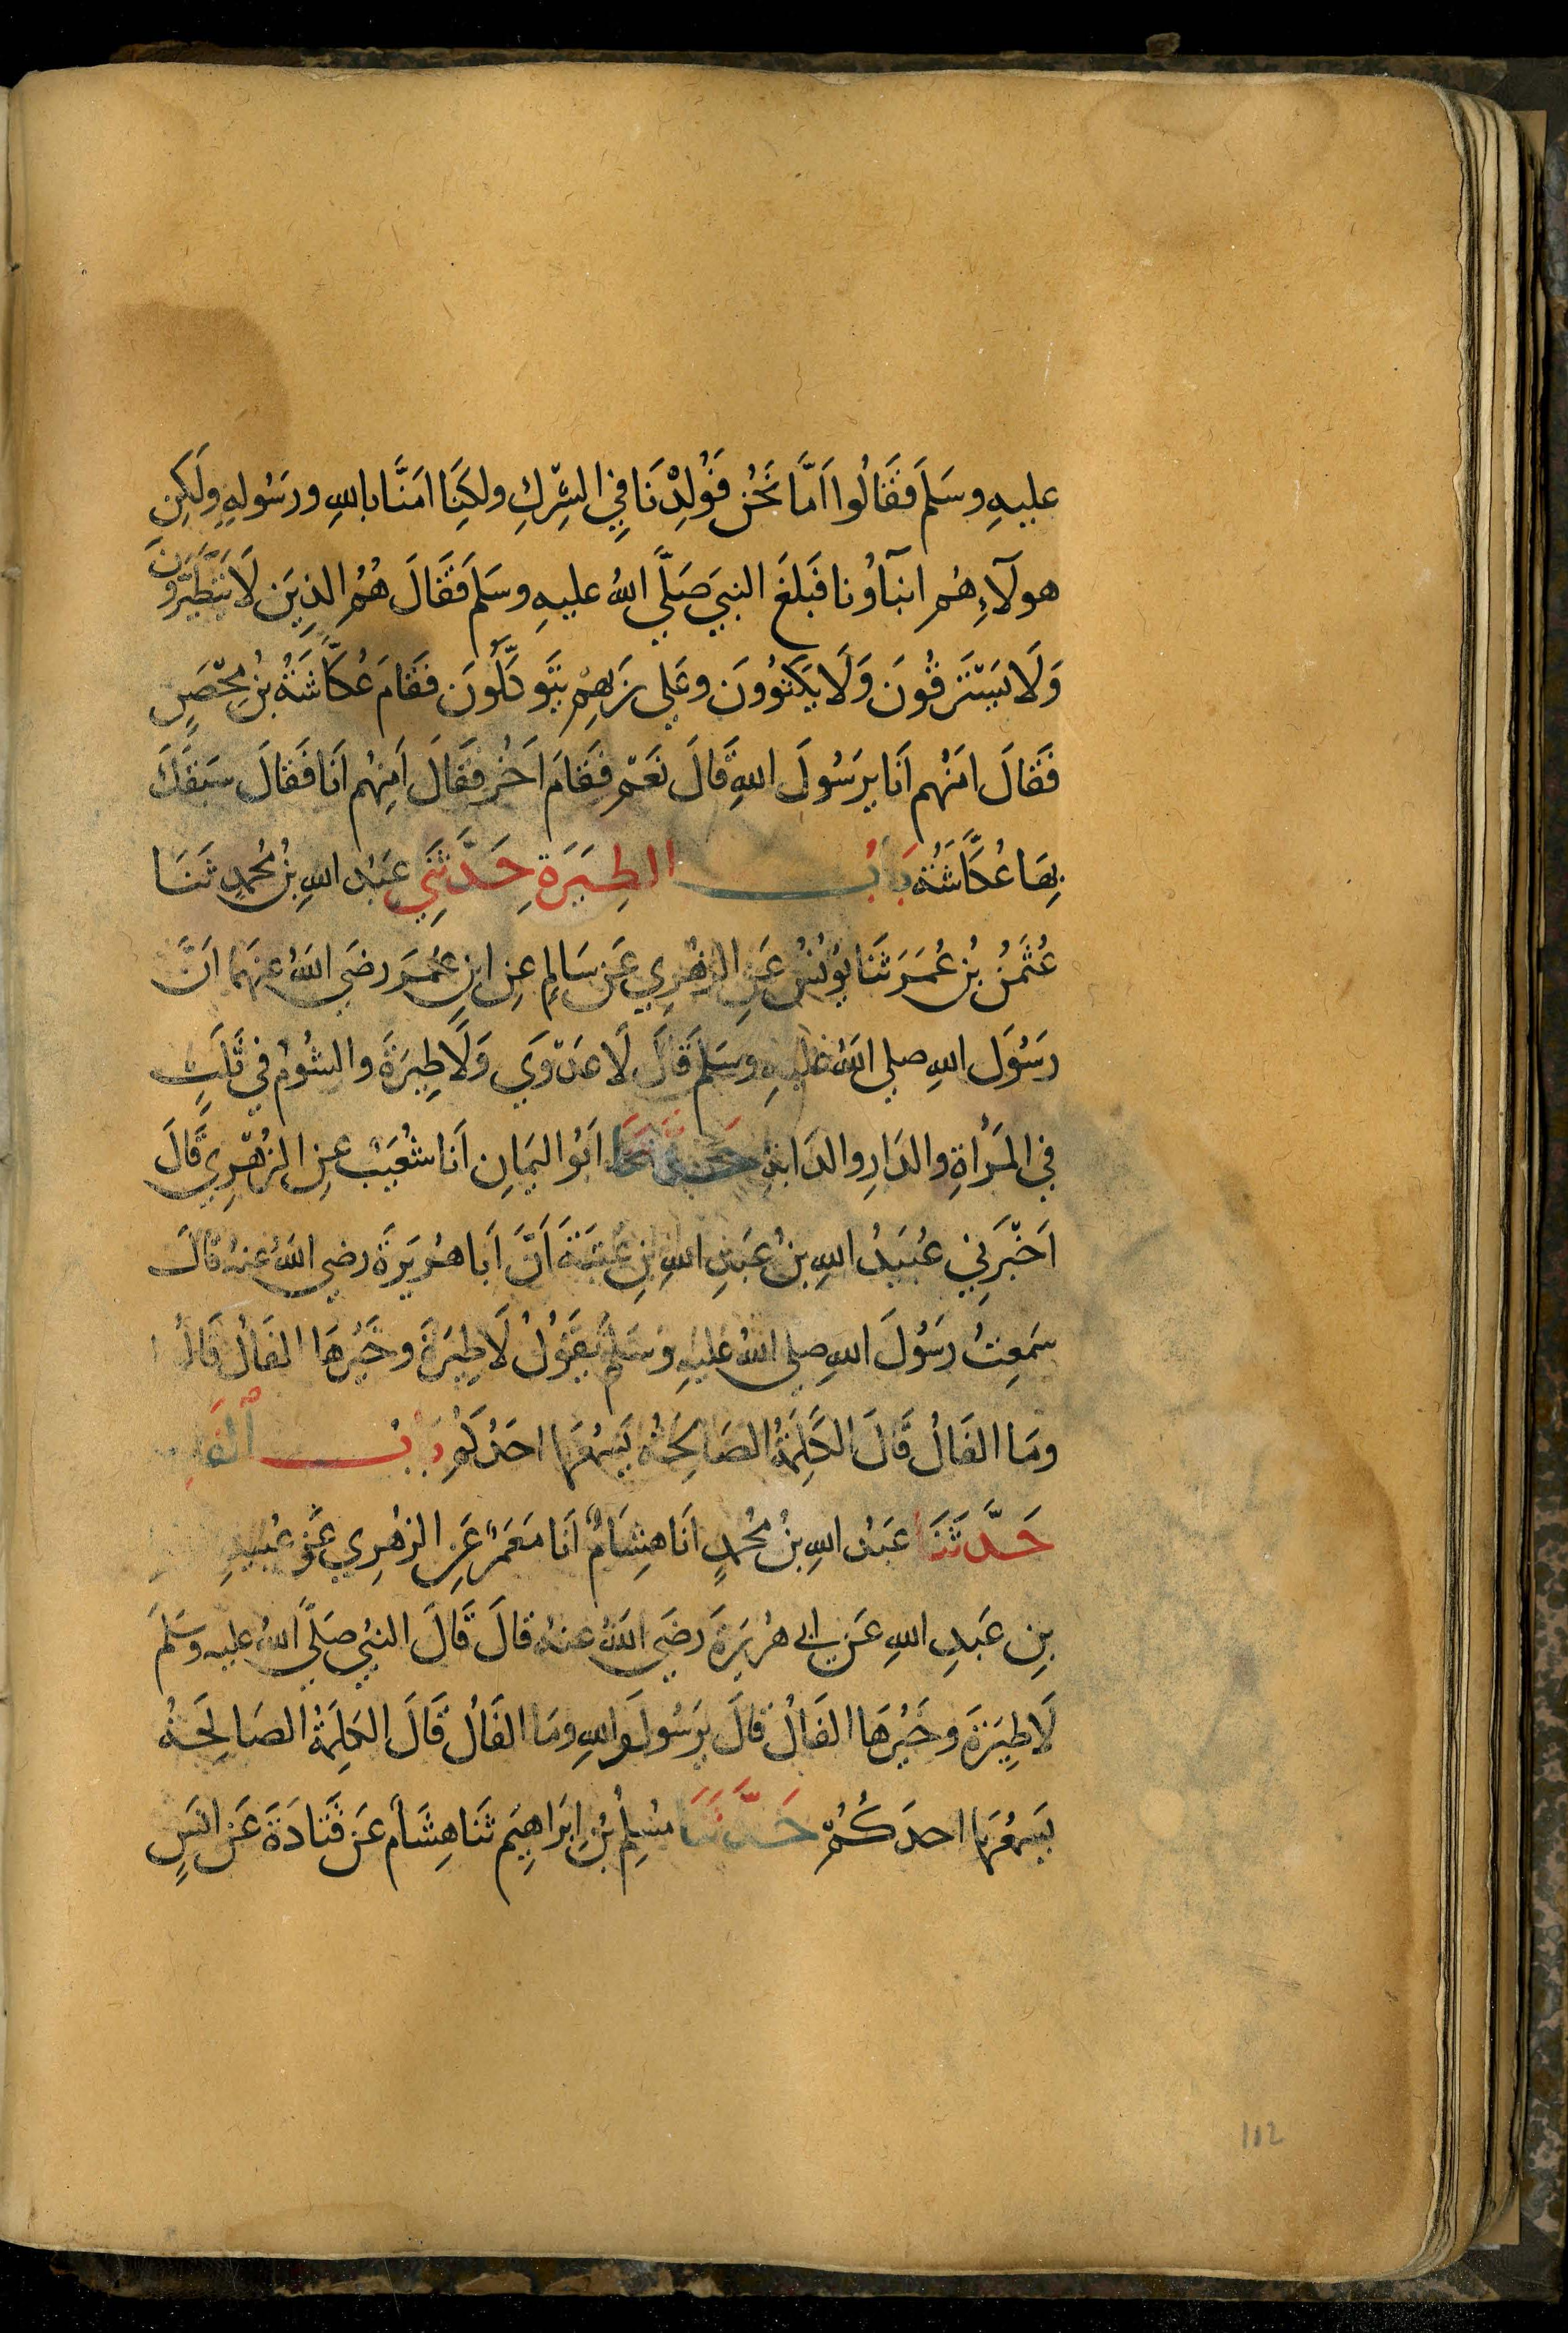 عليهِ وسَلمَ فَقَالُوا اَمَّا نَحْنُ فَوُلِدْنَا فِي الشِرْكِ ولكِنَا امَنَّا باللهِ ورَسُولِهِ ولَكِنِ
هولآءِ هُم ابنآوُنا فَبلغَ النبيَ صَلَّي اللهُ عليهِ وسَلمَ فَقَالَ هُمُ الذِينَ لَا يَتَطَيَّرُونَ
وَلَا يَسْتَرقُونَ وَلَا يَكتوُونَ وعَلى رَبهِم يَتَوكَّلُونَ فقَامَ عُكَّاشَةُ بْنُ مِحْصَنٍ
فَقَالَ امنْهُم اَنَا يرَسُولَ اللهِ قَالَ نَعَمْ فَقَامَ اَخُرُ فَقَالَ اَمِنْهُم اَنَا فَقَالَ سَبَقَكَ
بِهَا عُكَّاشَةُ بَابُ الطِيَرَةِ حَدَّثَنِي عَبْدُ اللهِ بْنُ مُحمدٍ ثَنَا
عُثمٰنُ بْنُ عُمَرَ ثَنَا يُونُسُ عَنِ الزهْرِي عَن سَالِمٍ عِنِ ابنِ عُمَرَ رضَي اللهُ عنهُمَا اَنَّ
رَسُولَ اللهِ صلي اللهُ عليهِ وسَلمَ قَالَ لَا عَدْوَي وَلَا طِيَرَةَ والشُومُ في ثَلٰثٍ
في المَرْاةِ والدَارِ والدَابةِ حَدَّثَنَا اَبُو اليَمَانِ اَنَا شُعَيْبٌ عنِ الزُهْرِي قَالَ
اَخْبَرَنِي عُبَيدُ اللهِ بنُ عَبدِ اللهِ بنِ عُتْبَةَ اَنَّ اَبَا هُريَرَةَ رضي اللهُ عنهُ قالَ
سَمِعتُ رَسُولَ اللهِ صلي اللهُ عليهِ وَسَلمَ يَقُولُ لَا طِيَرَةَ وخَيْرُهَا الفَالُ قَالُوا
ومَا الفَالُ قَالَ الكَلِمَةُ الصَالِحَةُ يَسمَعُهَا احَدُكُم بَابُ الْفَالِ
حَدَّثَنَا عَبدُ اللهِ بنُ مُحمدٍ انَا هِشَامٌ اَنَا مَعْمَرٌ عَنِ الزهْرِي عَنْ عُبيدِ اللهِ
بنِ عَبدِ اللهِ عَن ابي هُريَرَةَ رضَي اللهُ عنهُ قالَ قَالَ النبيُ صَلَّي اللهُ عليهِ وسَلمَ
لَا طِيَرَةَ وخَيْرُهَا الفَالُ قالَ يرَسُولَ اللهِ ومَا الفَالُ قَالَ الكلِمَةُ الصَالِحَةُ
يَسمَعُهَا احدَكُمْ حَدَّثَنَا مُسْلِمُ بْنُ ابرَاهِيَم ثَنا هِشَام عَن قَتَادَةَ عَن انَسٍ
112